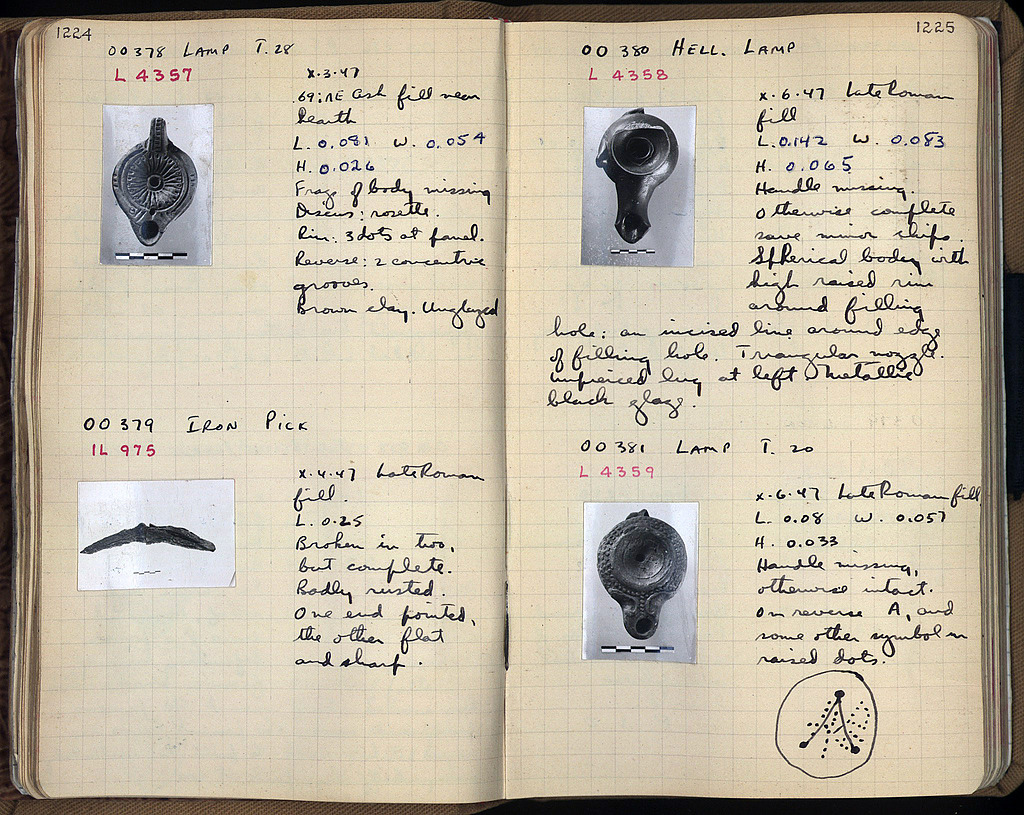 1224
OO 378 LAMP T. 28
L 4357
X·3·47
.69:NE Ash fill near
hearth
L. 0.081 W. 0.054
H. 0.026
Frags of body missing
Discus: rosette.
Rim: 3 dots at panel.
Reverse: 2 concentric
grooves.
Brown clay. Unglazed
OO 379 IRON PICK
IL 975
X·4·47 Late Roman
fill.
L. 0.25
Broken in two,
but complete.
Badly rusted.
One end pointed,
the other flat
and sharp.
1225
OO 380 HELL. LAMP
L 4358
X·6·47 Late Roman
fill
L. 0.142 W. 0.083
H. 0.065
Handle missing.
Otherwise complete
save minor chips.
Spherical body with
high raised rim
around filling
hole: an incised line around edge
of filling hole. Triangular nozzle.
Unpierced lug at left. Metallic
black glaze.
OO 381 LAMP T. 20
L 4359
X·6·47 Late Roman fill
L. 0.08 W. 0.057
H. 0.033
Handle missing,
otherwise intact.
On reverse A, and
some other symbol in
raised dots.
A